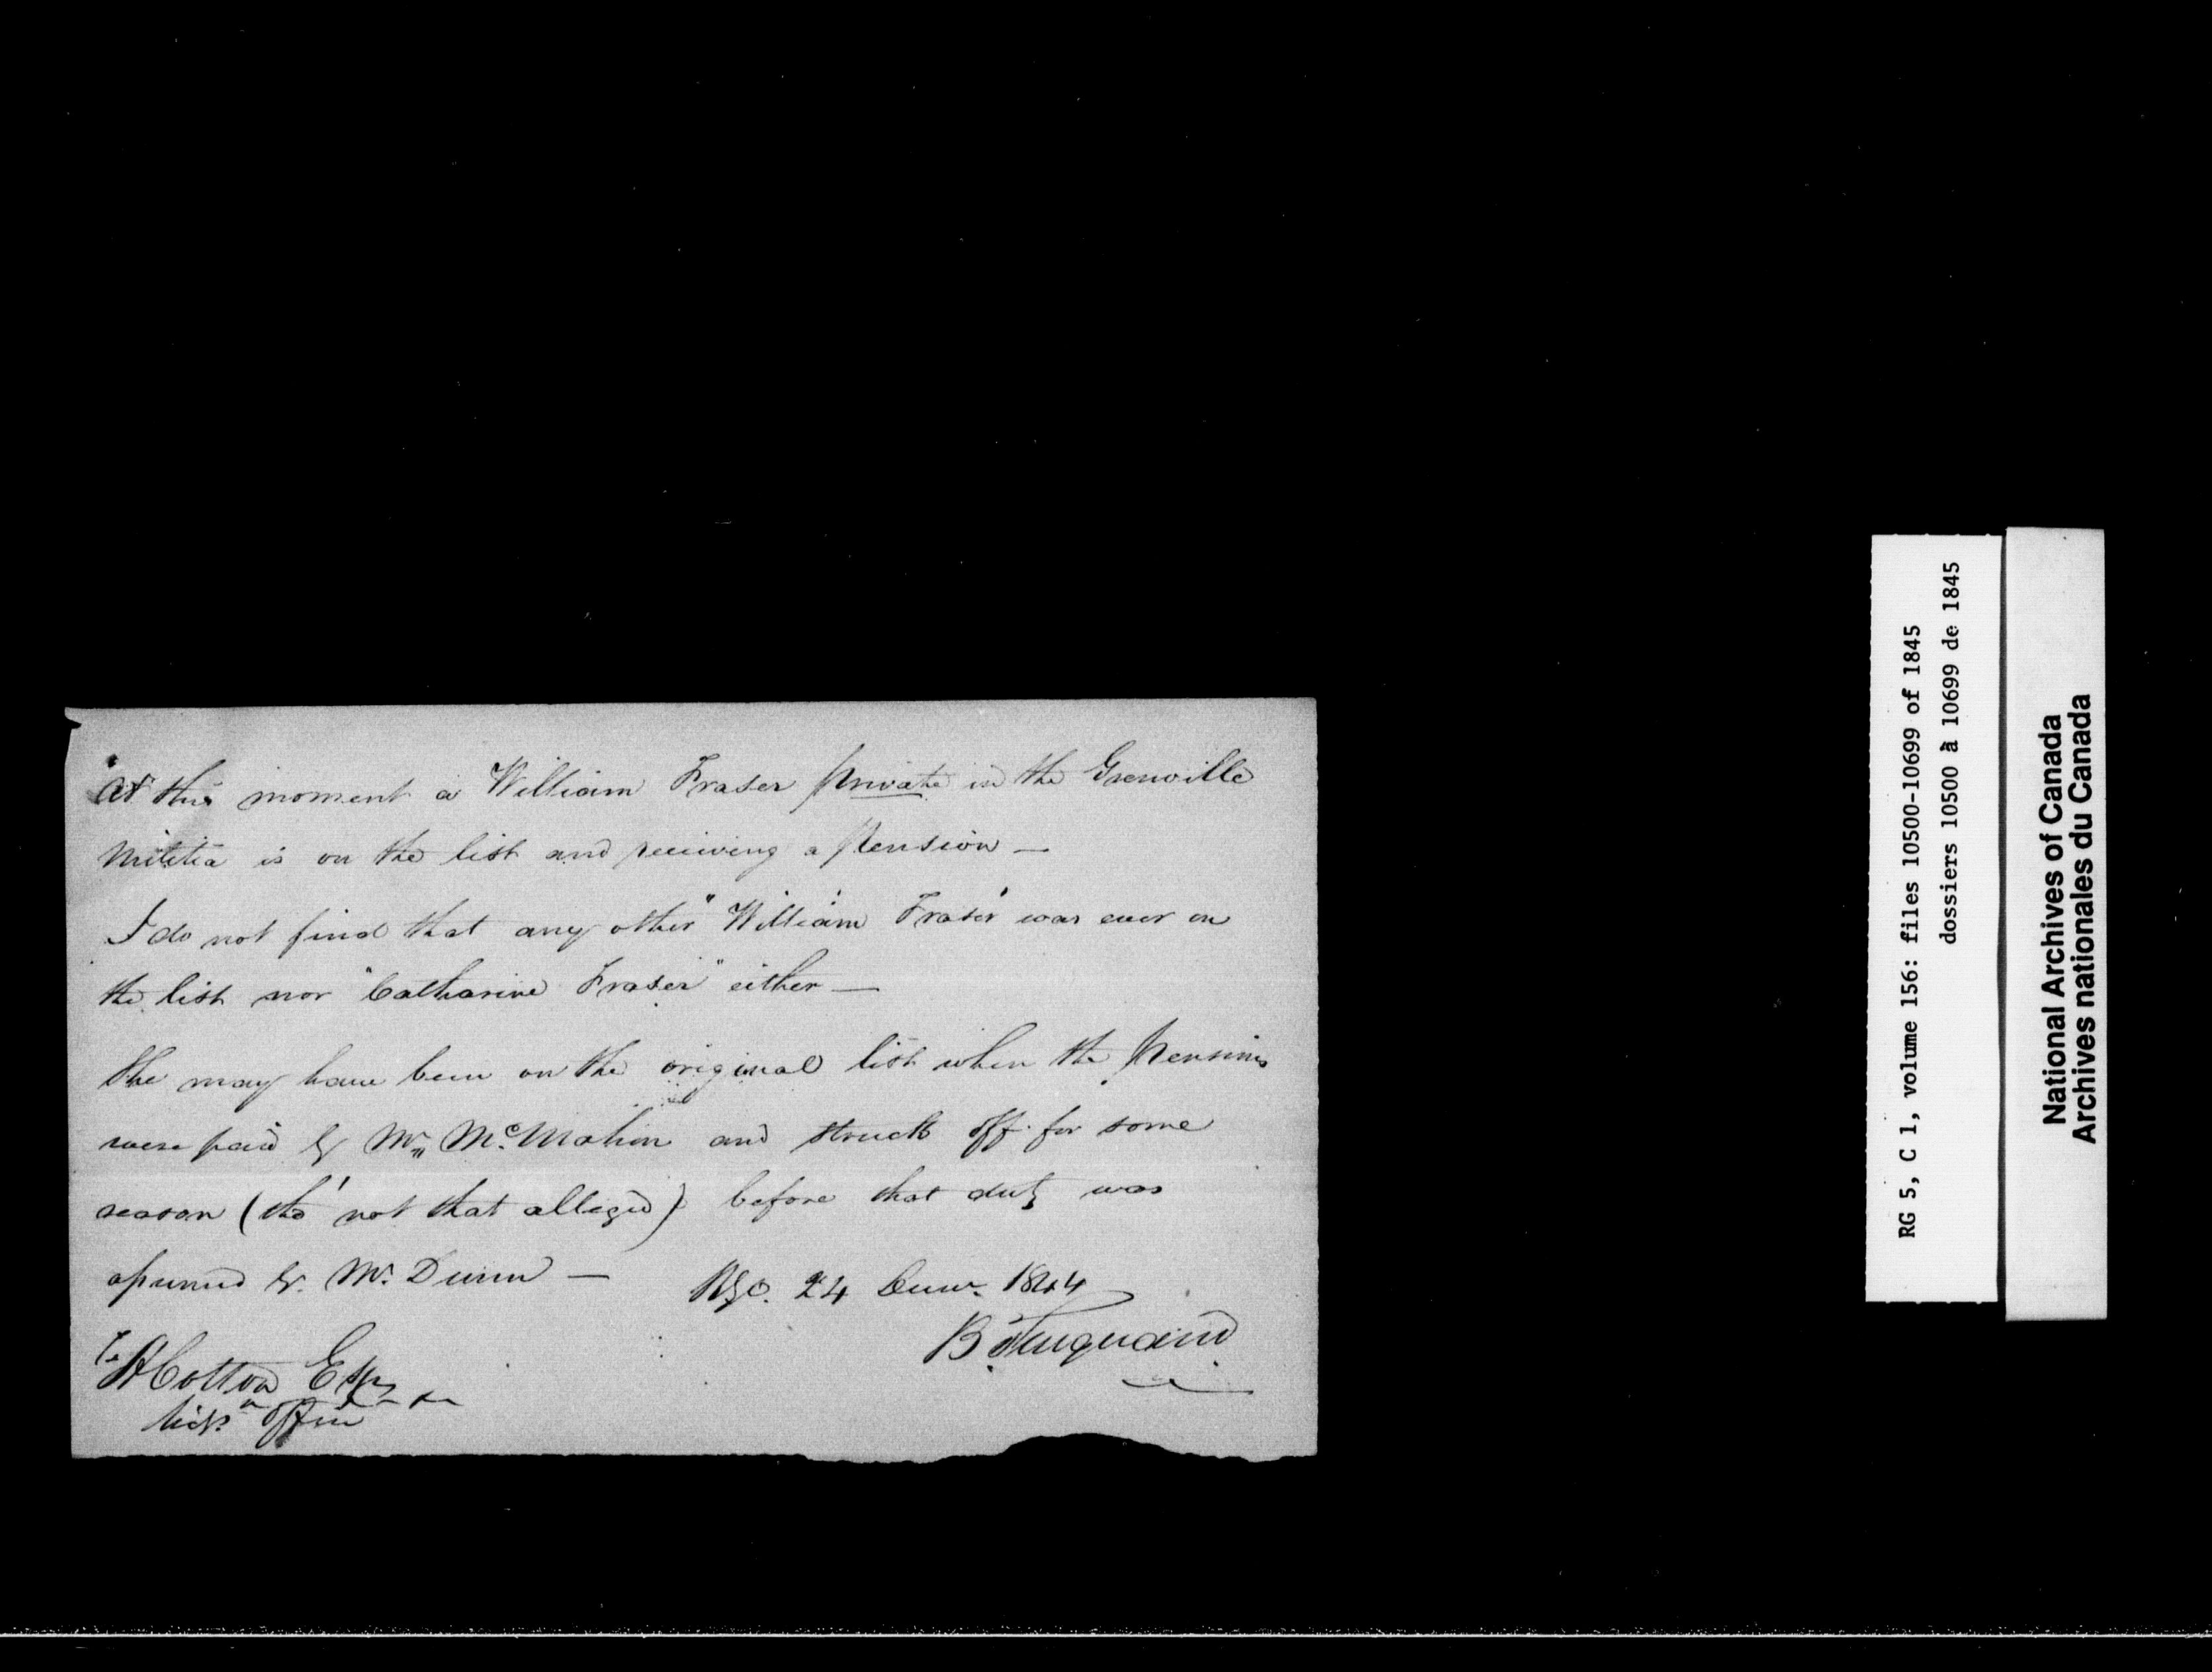 At this moment a William Fraser private in the Grenville
Militia is on the list and receiving a Pension —
I do not find that any other "William Fraser" was ever on
the list nor "Catharine Fraser" either —
She may have been on the original list when the Pensions
were paid by Mr. McMahon and struck off for some
reason (tho' not that alleged) before that duty was
assumed by Mr. Dunn —
RGO. 24 1844
B Turquand
To
Cotton Esqr
office
RG 5, C 1, volume 156: files 10500-10699 of 1845
dossiers 10500 à 10699 de 1845
National Archives of Canada
Archives nationales du Canada